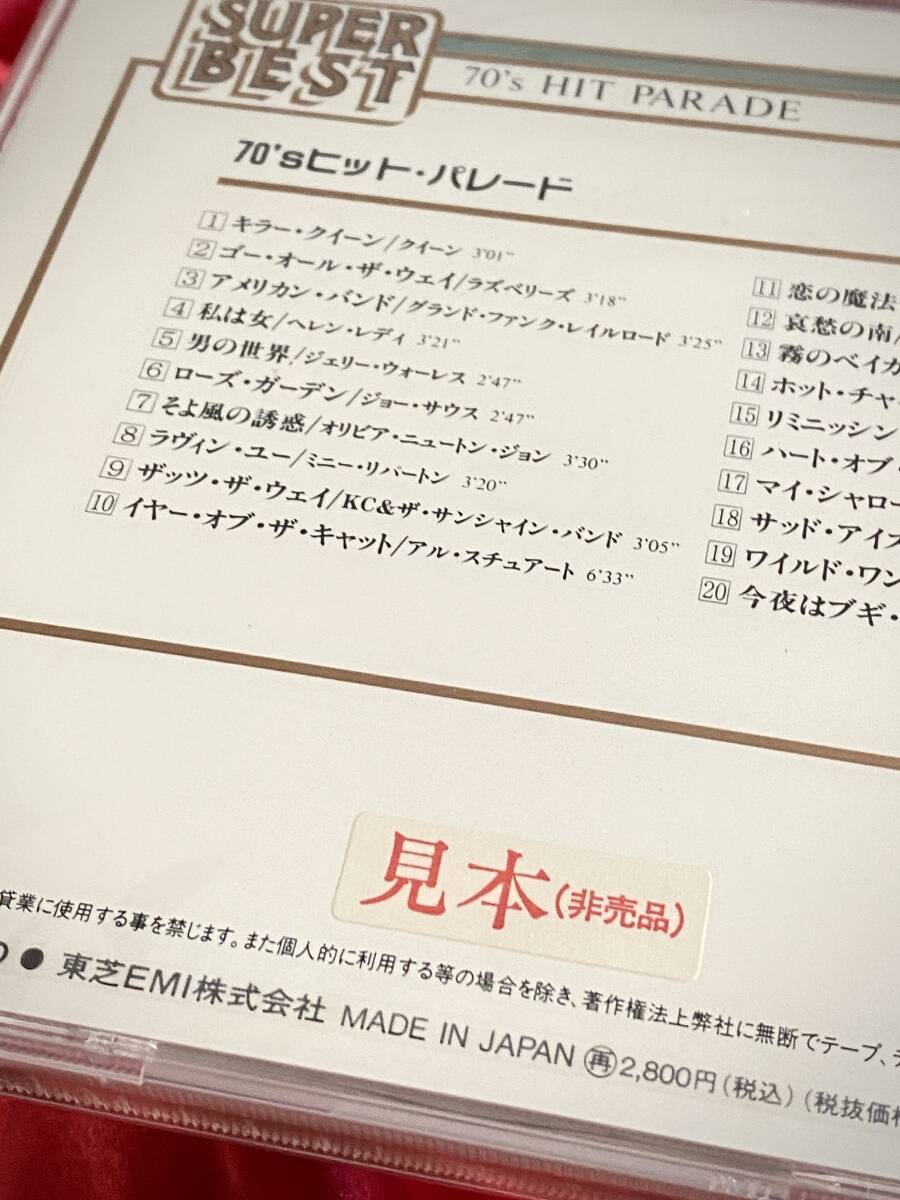 SUPER
BEST
70's HIT PARADE
70'sヒット・パレード
1 キラー・クイーン/クイーン 3'01"
2 ゴー・オール・ザ・ウェイ/ラズベリーズ 3'18"
3 アメリカン・バンド/グランド・ファンク・レイルロード 3'25"
4 私は女/ヘレン・レディ 3'21"
5 男の世界/ジェリー・ウォーレス 2'47"
6 ローズ・ガーデン/ジョー・サウス 2'47"
7 そよ風の誘惑/オリビア・ニュートン・ジョン 3'30"
8 ラヴィン・ユー/ミニー・リパートン 3'20"
9 ザッツ・ザ・ウェイ/KC&ザ・サンシャイン・バンド 3'05"
10 イヤー・オブ・ザ・キャット/アル・スチュアート 6'33"
11 恋の魔法
12 哀愁の南/
13 霧のベイカ
14 ホット・チャ
15 リミニッシン
16 ハート・オブ・
17 マイ・シャロー
18 サッド・アイズ
19 ワイルド・ワン
20 今夜はブギ・
見本(非売品)
貸業に使用する事を禁じます。また個人的に利用する等の場合を除き、著作権法上弊社に無断でテープ、テ
● 東芝EMI株式会社 MADE IN JAPAN ㊢2,800円(税込)(税抜価格